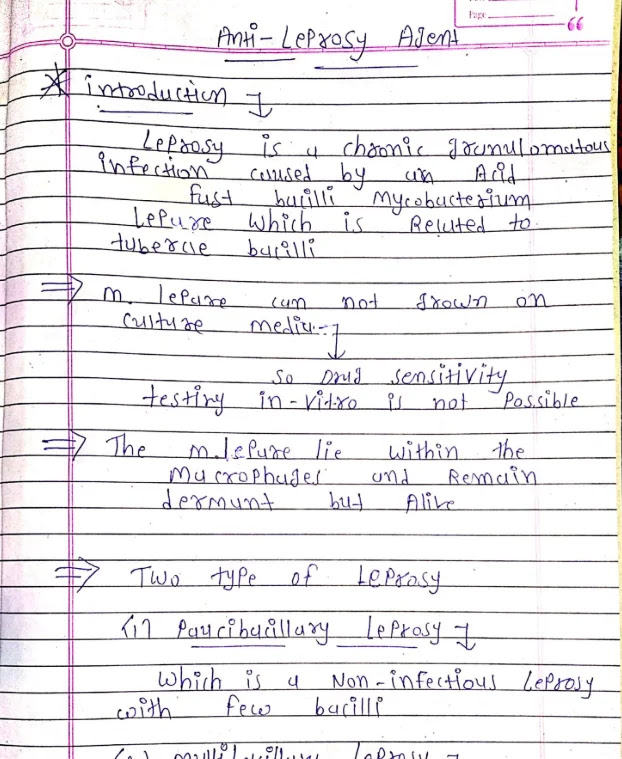 Page
Anti-Leprosy Agent
* introduction
Leprosy is a chronic granulomatous
infection caused by an Acid
fast bacilli Mycobacterium
Lepare which is Related to
tubercle bacilli
⇒ m. lepare can not grown on
culture media:-
↓
so Drug sensitivity
testing in-vitro is not Possible
⇒ The m.lepare lie within the
Macrophages and Remain
dermant but Alive
⇒ Two type of Leprosy
(1) Paucibacillary Leprosy
which is a Non-infectious Leprosy
with few bacilli
(2) multibacillary leprosy